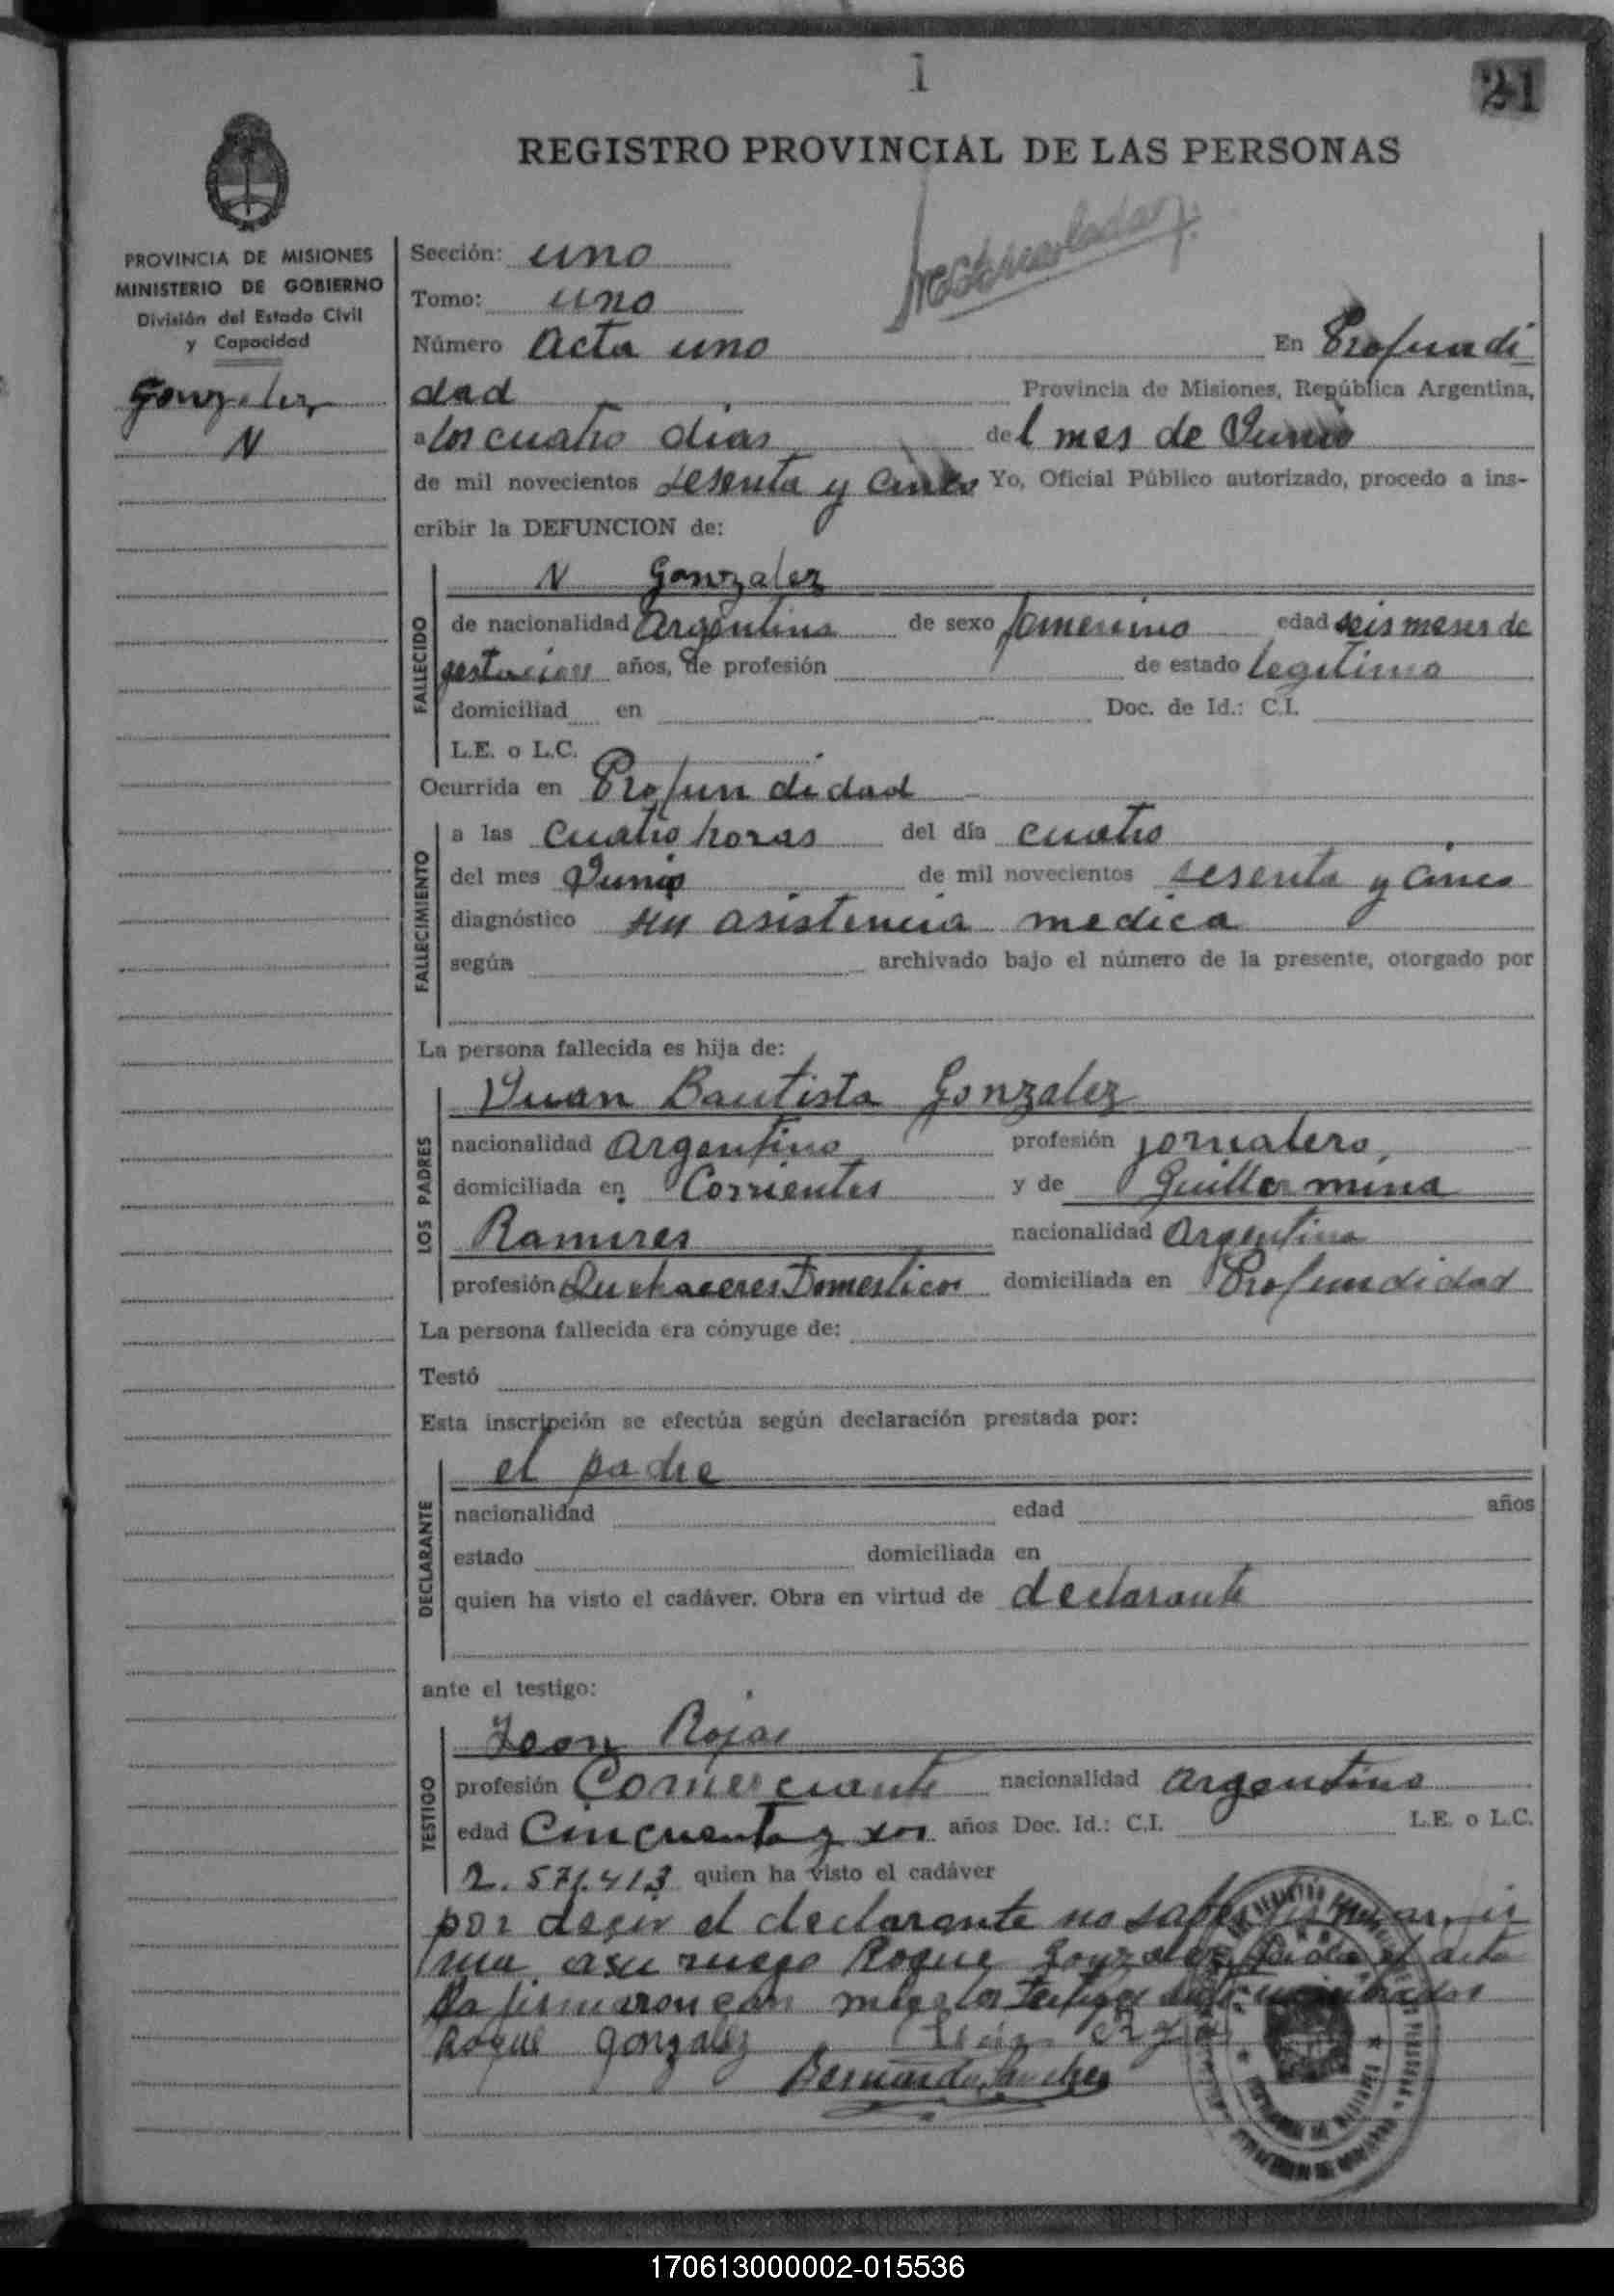 1
21
REGISTRO PROVINCIAL DE LAS PERSONAS
PROVINCIA DE MISIONES
MINISTERIO DE GOBIERNO
División del Estado Civil
y Capacidad
Gonzalez
N
Sección: uno
Tomo: uno
Número Acta uno En Profundi
dad Provincia de Misiones, República Argentina,
a los cuatro dias del mes de Junio
de mil novecientos sesenta y cinco Yo, Oficial Público autorizado, procedo a ins-
cribir la DEFUNCION de:
FALLECIDO
N Gonzalez
de nacionalidad Argentina de sexo femenino edad seis meses de
gestacion años, de profesión de estado legitimo
domiciliad en Doc. de Id.: C.I.
L.E. o L.C.
Ocurrida en Profundidad
FALLECIMIENTO
a las cuatro horas del día cuatro
del mes Junio de mil novecientos sesenta y cinco
diagnóstico sin asistencia medica
según archivado bajo el número de la presente, otorgado por
La persona fallecida es hija de:
LOS PADRES
Juan Bautista Gonzalez
nacionalidad argentino profesión jornalero,
domiciliada en Corrientes y de Guillermina
Ramires nacionalidad Argentina
profesión Quehaceres Domesticos domiciliada en Profundidad
La persona fallecida era cónyuge de:
Testó
Esta inscripción se efectúa según declaración prestada por:
DECLARANTE
el padre
nacionalidad edad años
estado domiciliada en
quien ha visto el cadáver. Obra en virtud de declarante
ante el testigo:
TESTIGO
Leon Rojas
profesión Comerciante nacionalidad argentino
edad Cincuenta y dos años Doc. Id.: C.I. L.E. o L.C.
2.571.413 quien ha visto el cadáver
por decir el declarante no saber firmar, fir
ma a su ruego Roque Gonzalez, el acta
la firmaron con migo los testigos
Roque Gonzalez
Bernardo Sanches
170613000002-015536